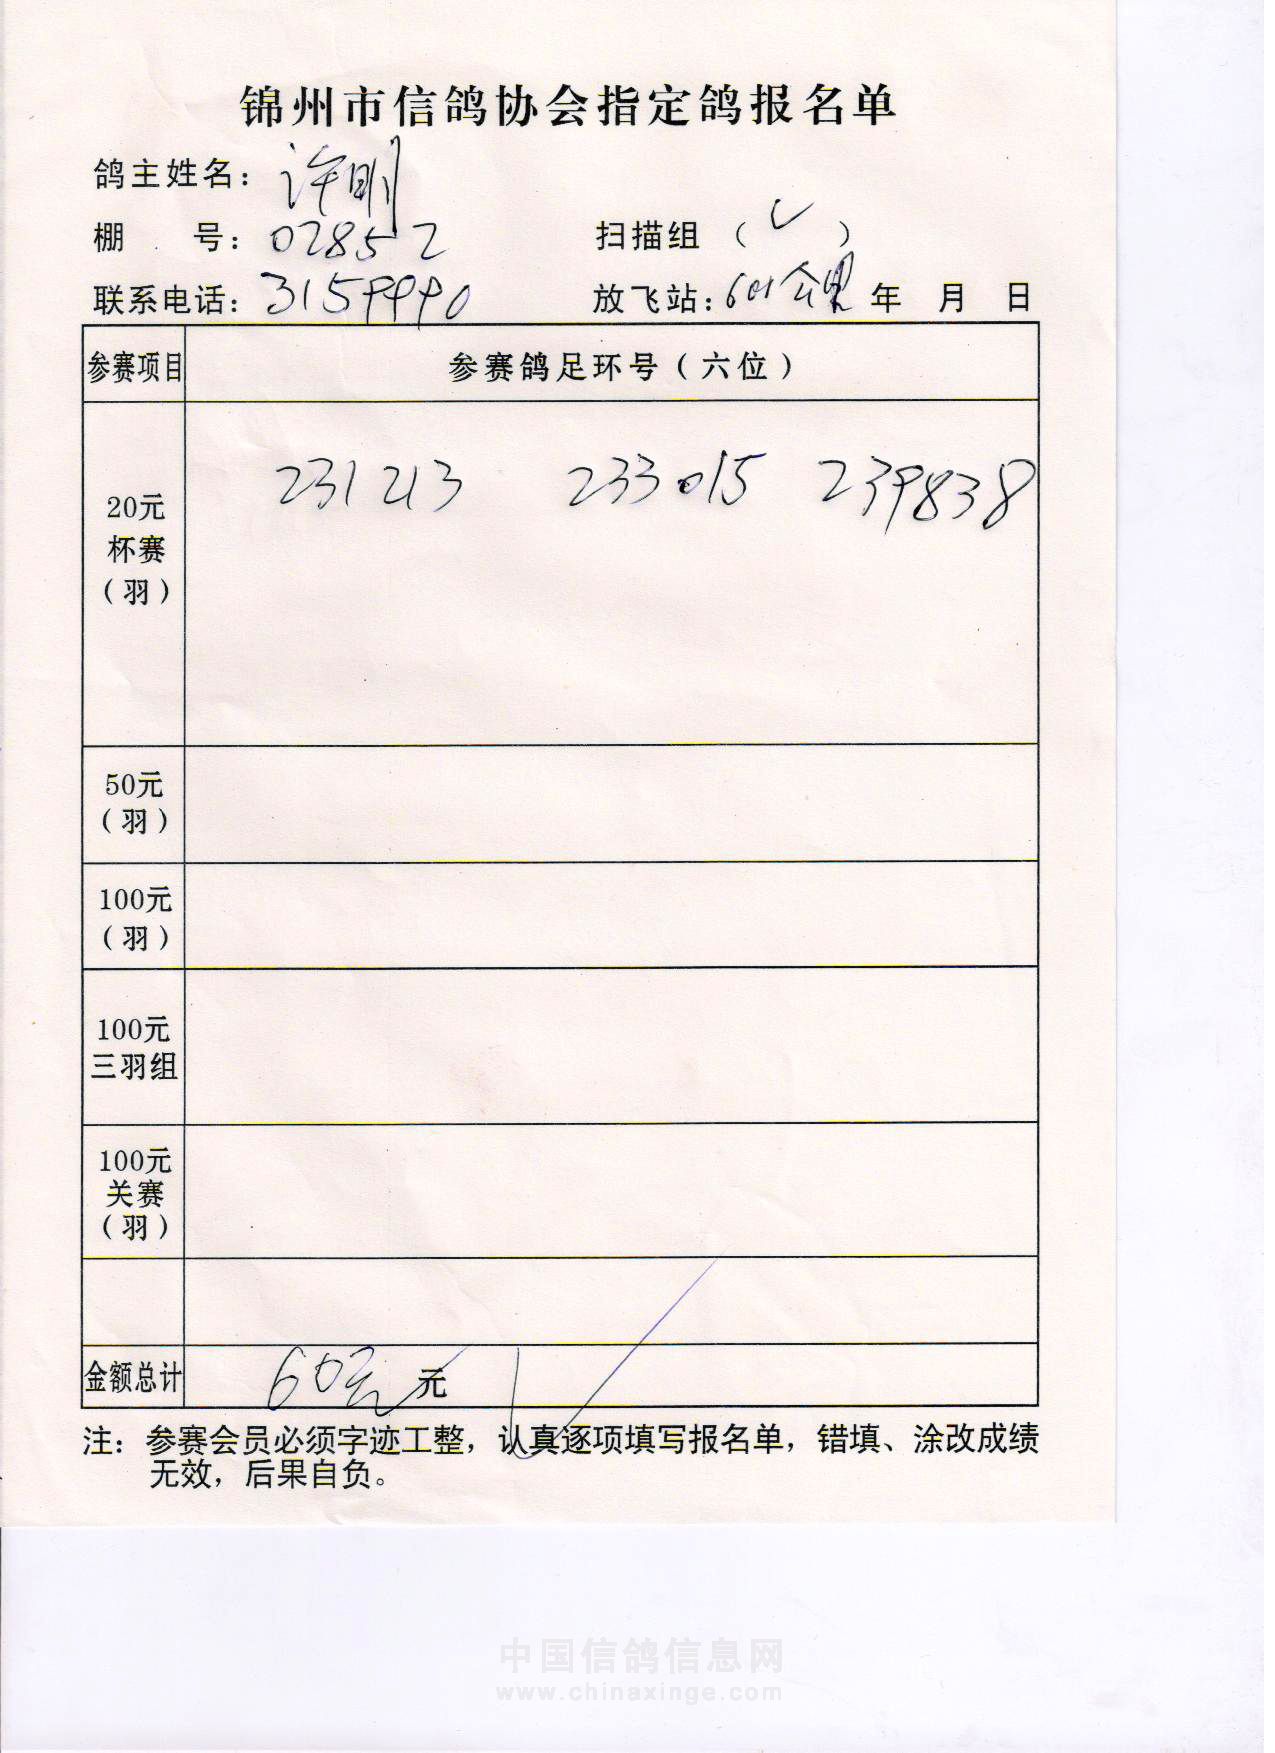 锦州市信鸽协会指定鸽报名单
鸽主姓名：许明
棚 号：02852 扫描组（√）
联系电话：3159990 放飞站：601公里 年 月 日
参赛项目 参赛鸽足环号（六位）
20元
杯赛
（羽）
231213 233015 239838
50元
（羽）
100元
（羽）
100元
三羽组
100元
关赛
（羽）
金额总计 60元 元
注：参赛会员必须字迹工整，认真逐项填写报名单，错填、涂改成绩
无效，后果自负。
中国信鸽信息网
www.chinaxinge.com